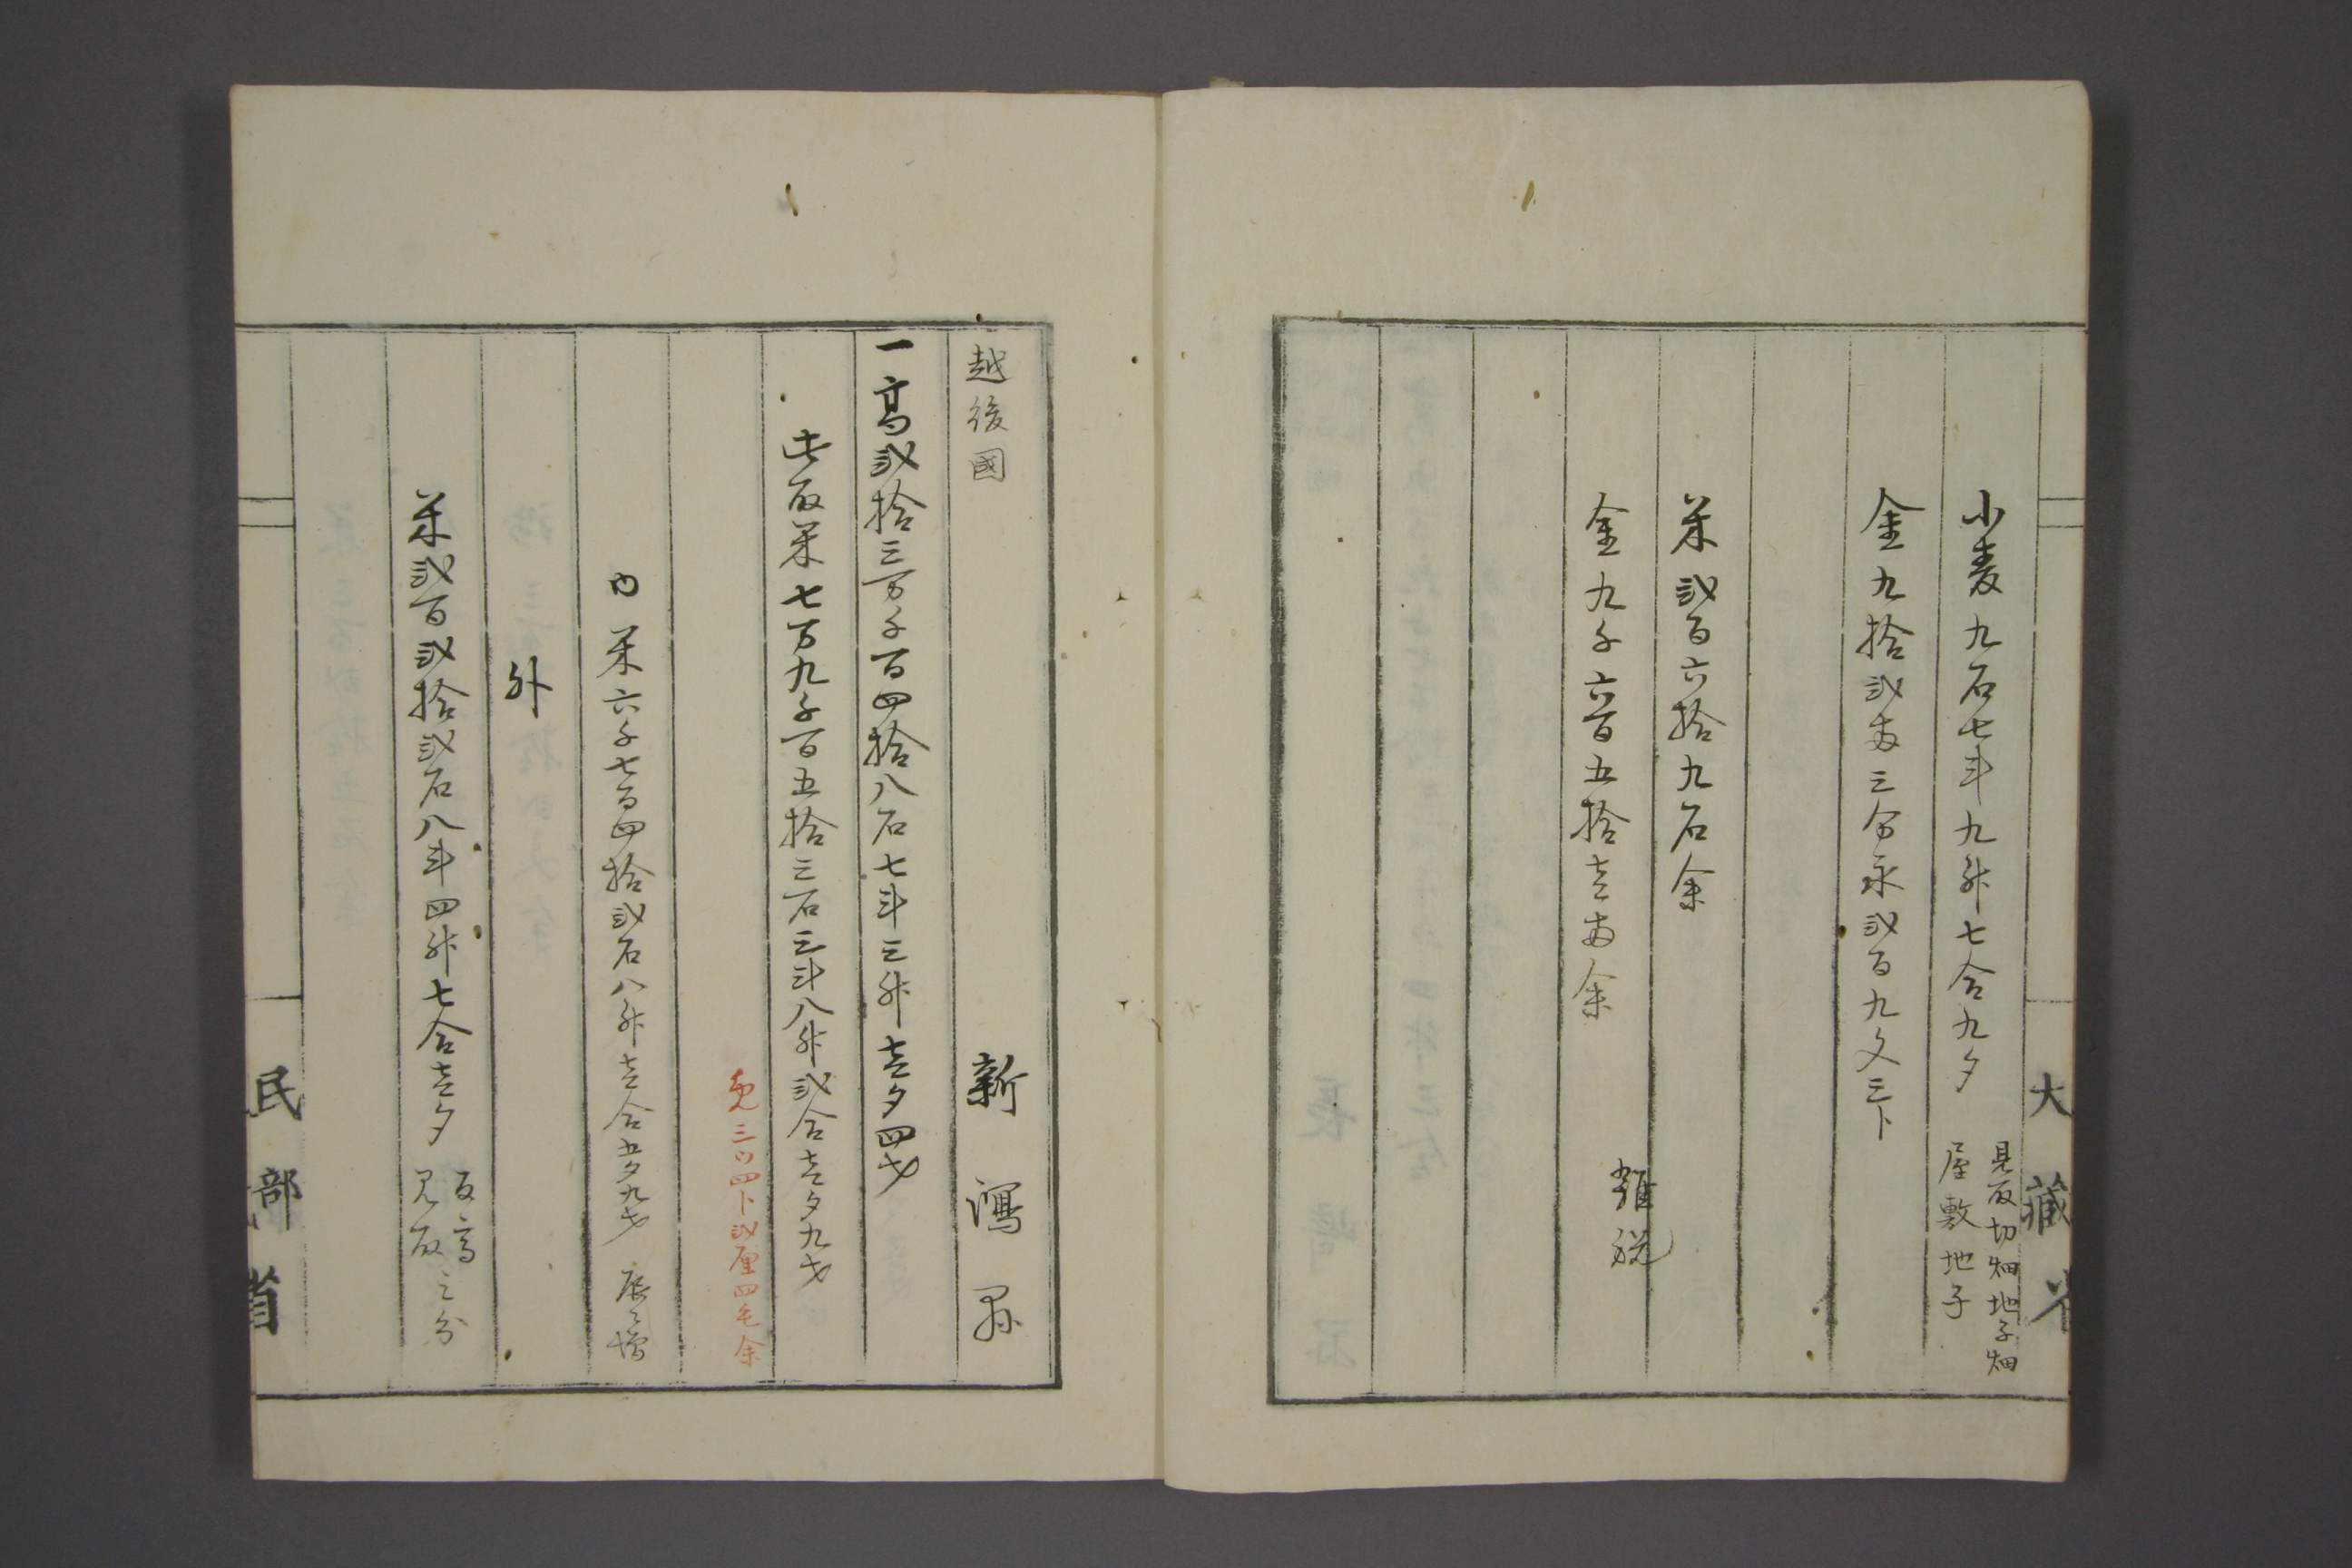 大藏省
小麦九石七斗九升七合九夕
見取切畑地子畑
屋敷地子
金九拾弐両三分永弐百九文三卜
米弐百六拾九石余
金九千六百五拾壱両余
雑税
越後國
新潟県
一高弐拾三万千百四拾八石七斗三升壱夕四才
此取米七万九千百五拾三石三斗八升弐合壱夕九才
免三ツ四卜弐厘四毛余
内米六千七百四拾弐石八升壱合五夕九才 辰ゟ増
外
米弐百弐拾弐石八斗四升七合壱夕
反高之分
見取
民部省